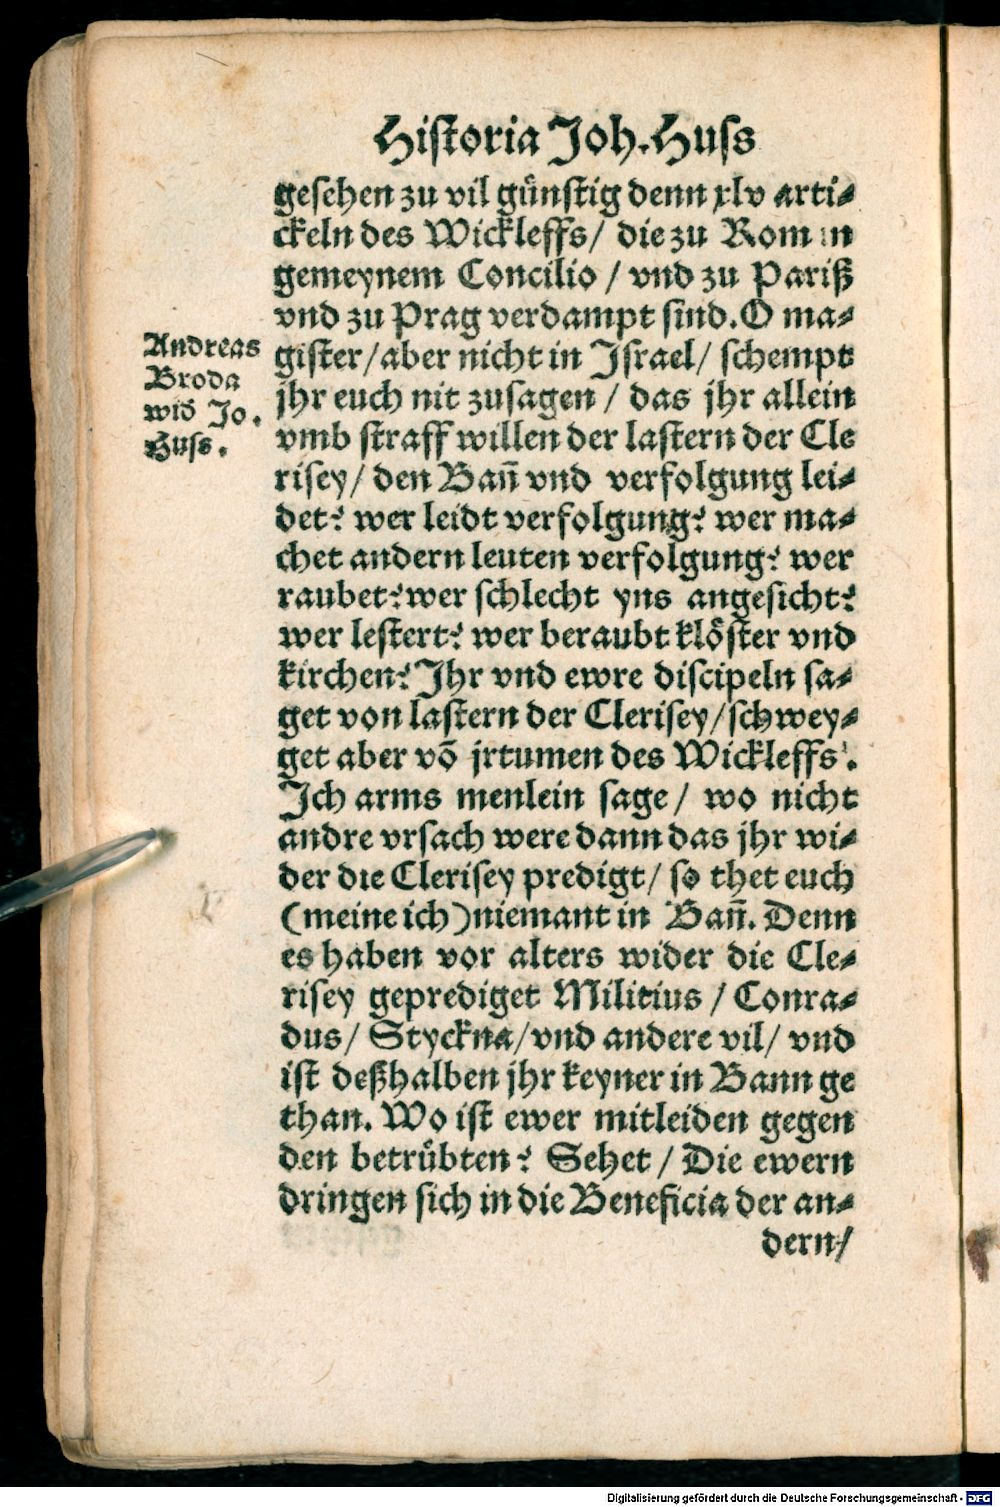 Historia Joh. Huss
gesehen zu vil günstig denn xlv arti-
ckeln des Wickleffs/ die zu Rom in
gemeynem Concilio / vnd zu Pariß
vnd zu Prag verdampt sind. O ma-
gister/ aber nicht in Jsrael/ schempt
jhr euch nit zusagen / das jhr allein
vmb straff willen der lastern der Cle
risey/ den Bañ vnd verfolgung lei-
det? wer leidt verfolgung? wer ma-
chet andern leuten verfolgung? wer
raubet? wer schlecht yns angesicht?
wer lestert? wer beraubt klöster vnd
kirchen? Jhr vnd ewre discipeln sa-
get von lastern der Clerisey/ schwey-
get aber võ jrtumen des Wickleffs.
Jch arms menlein sage / wo nicht
andre vrsach were dann das jhr wi-
der die Clerisey predigt/ so thet euch
(meine ich) niemant in Bañ. Denn
es haben vor alters wider die Cle-
risey geprediget Militius / Conra-
dus/ Styckna/ vnd andere vil/ vnd
ist deßhalben jhr keyner in Bann ge
than. Wo ist ewer mitleiden gegen
den betrübten? Sehet / Die ewern
dringen sich in die Beneficia der an-
dern/
Andreas
Broda
wid Jo.
Huss.
Digitalisierung gefördert durch die Deutsche Forschungsgemeinschaft - DFG